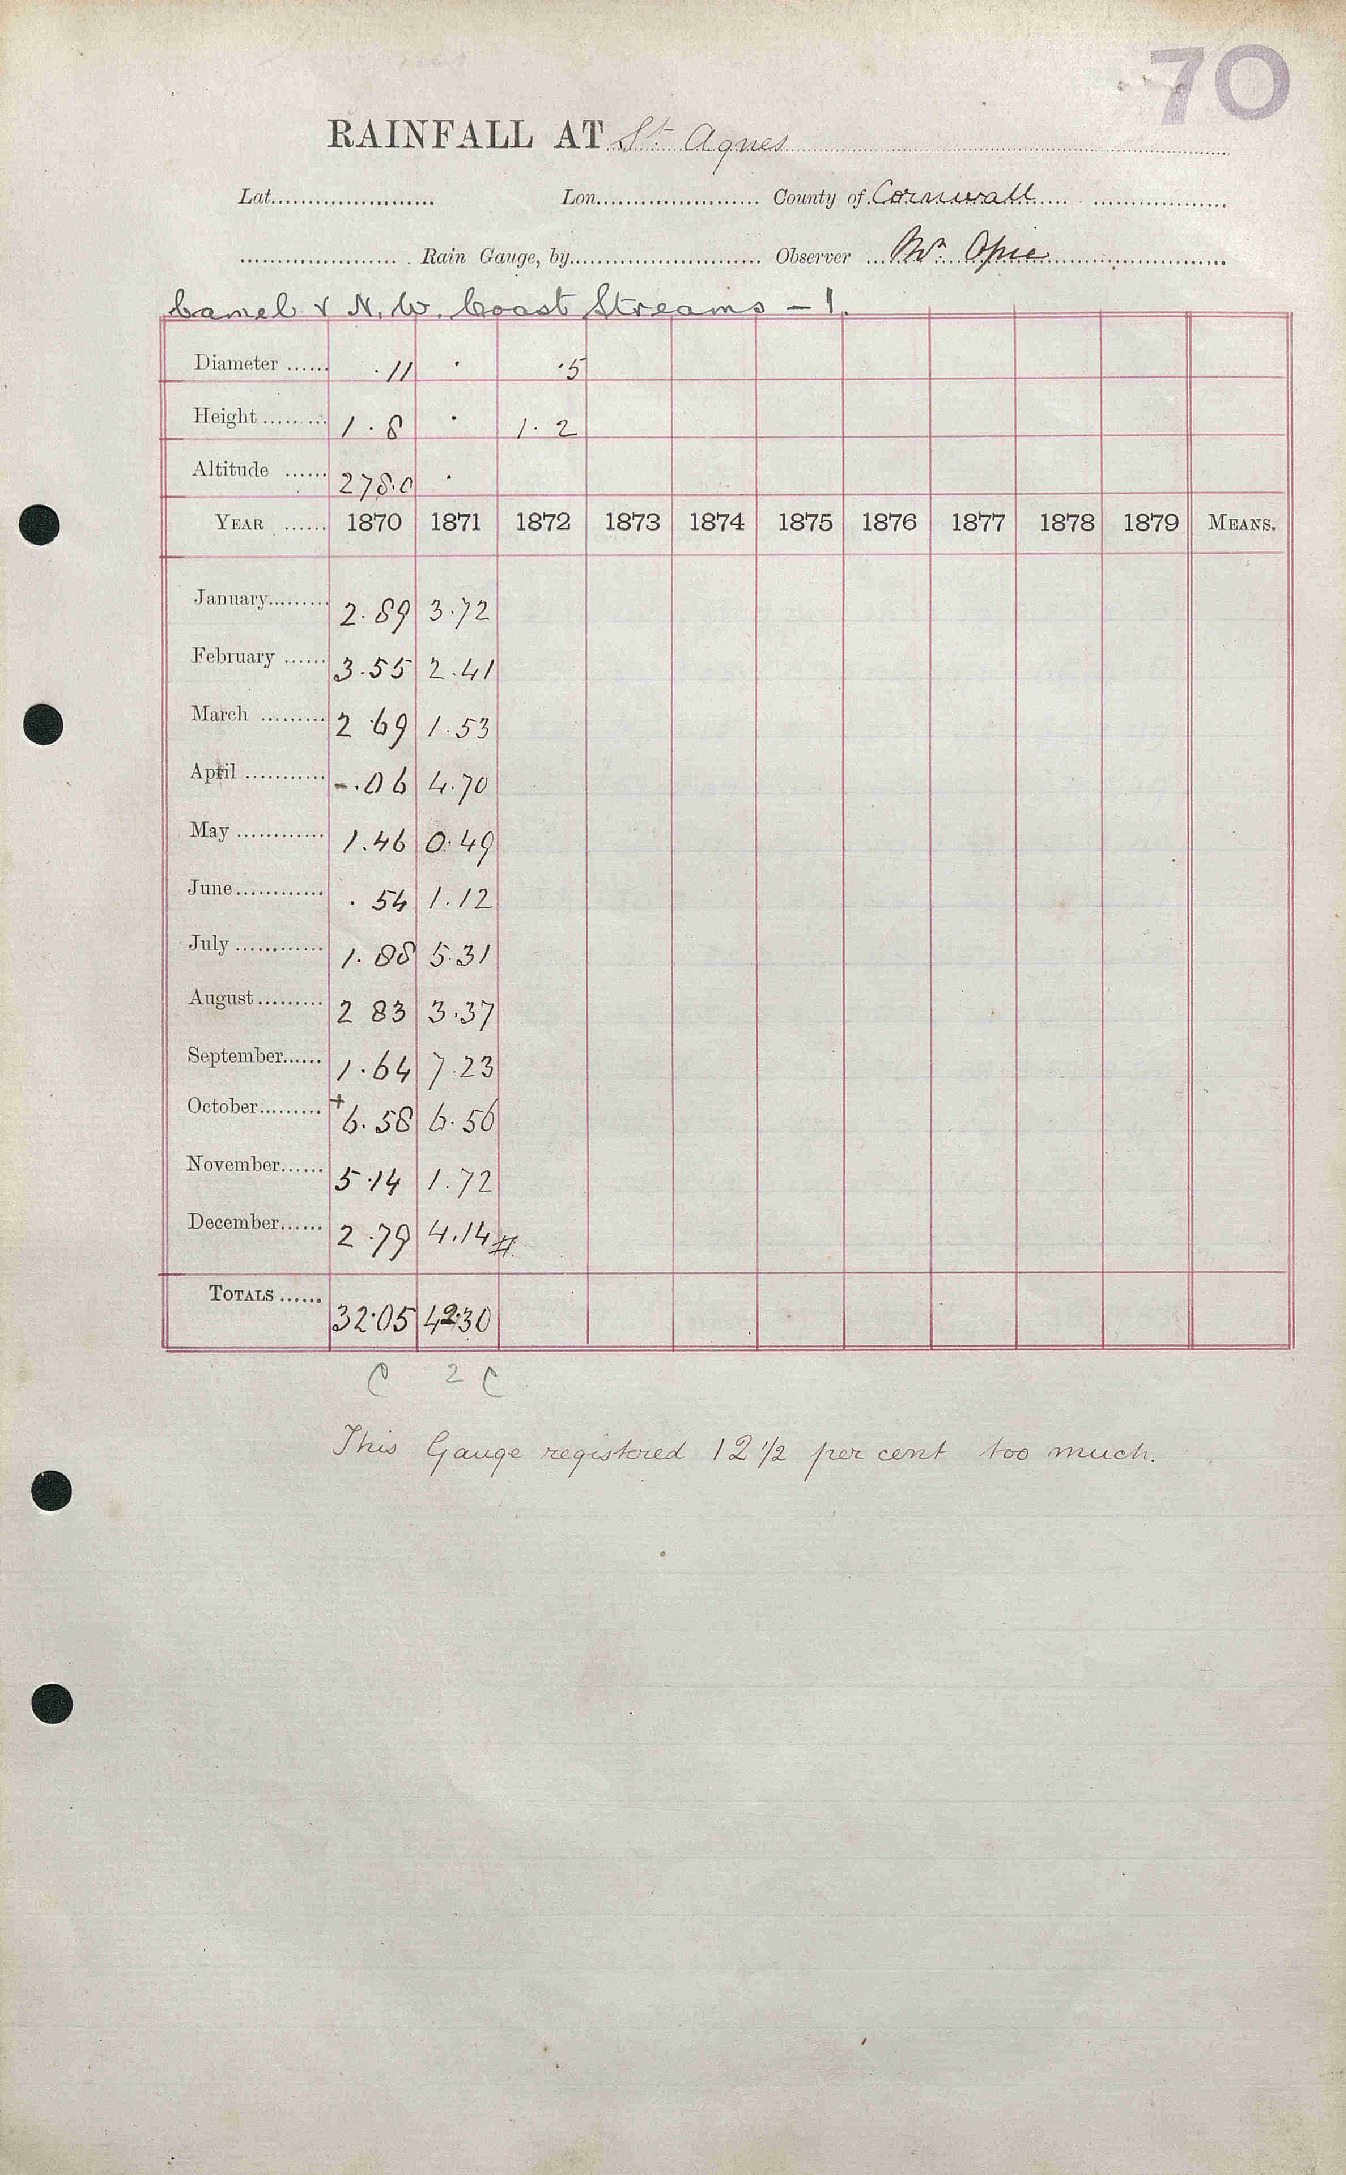 70
RAINFALL AT St. Agnes
Lat. Lon. County of Cornwall
Rain Gauge, by Observer Mr. Opie
Camel & N. W. Coast Streams - 1.
Diameter ...... .11 · .5
Height ......... 1.8 · 1.2
Altitude ...... 278.0 ·
YEAR ...... 1870 1871 1872 1873 1874 1875 1876 1877 1878 1879 MEANS.
January......... 2.89 3.72
February ...... 3.55 2.41
March ......... 2.69 1.53
April ............ -.06 4.70
May ............ 1.46 0.49
June............ .54 1.12
July ............ 1.88 5.31
August......... 2 83 3.37
September...... 1.64 7.23
October......... +6.58 6.56
November...... 5.14 1.72
December...... 2.79 4.14 #
TOTALS ...... 32.05 42.30
C 2 C
This Gauge registered 12 1/2 per cent too much.